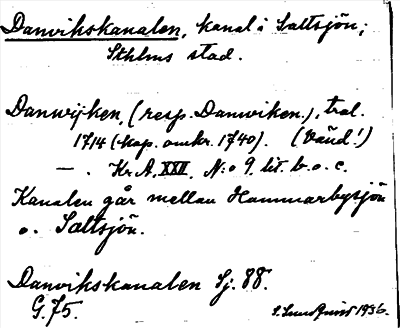 Danvikskanalen, kanal i Saltsjön;
Sthlms stad.
Danwijken, (resp. Danwiken.), tral.
1714 (kop. omkr. 1740). (Vänd!)
— . Kr. A. XXII. N:o 9 lit. b. o. c.
Kanalen går mellan Hammarbysjön
o. Saltsjön.
Danvikskanalen Sj. 88.
G. 75.
1936.